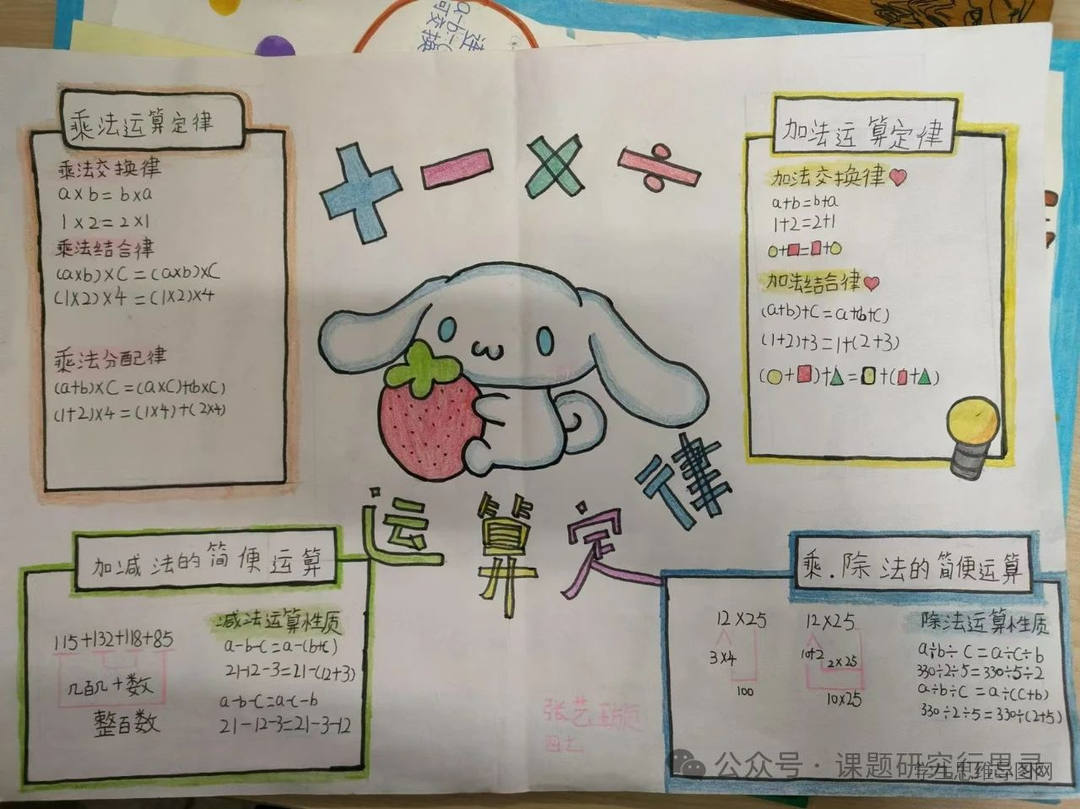 a-b-c
可交换
乘法运算定律
乘法交换律
a×b=b×a
1×2=2×1
乘法结合律
(a×b)×c=(a×b)×c
(1×2)×4=(1×2)×4
乘法分配律
(a+b)×c=(a×c)+b×c)
(1+2)×4=(1×4)+(2×4)
+ - × ÷
加法运算定律
加法交换律
a+b=b+a
1+2=2+1
加法结合律
(a+b)+c=a+(b+c)
(1+2)+3=1+(2+3)
运算定律
加减法的简便运算
115+132+118+85
几百几十数
整百数
减法运算性质
a-b-c=a-(b+c)
21-12-3=21-(12+3)
a-b-c=a-c-b
21-12-3=21-3-12
张艺
四七
乘.除法的简便运算
12×25
3×4
100
12×25
10+2
2×25
10×25
除法运算性质
a÷b÷c=a÷c÷b
330÷2÷5=330÷5÷2
a÷b÷c=a÷(c+b)
330÷2÷5=330÷(2+5)
公众号·课题研究行思录
学生思维导图网